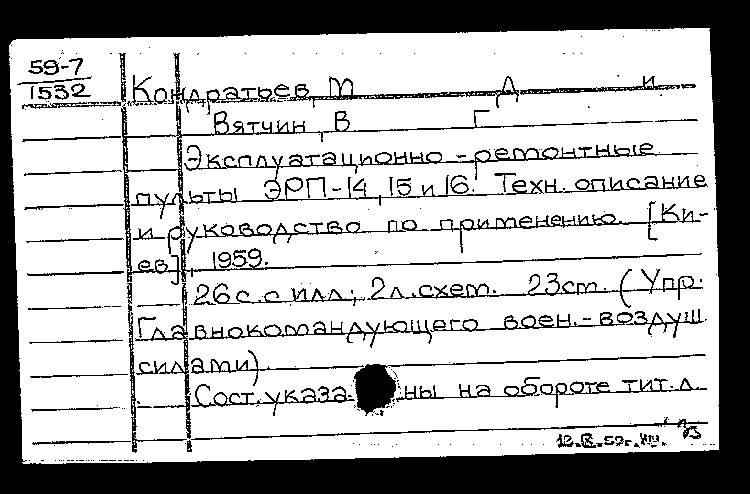 59-7
1532
Кондратьев, М Д и
Вятчин, В Г
Эксплуатационно-ремонтные
пульты ЭРП-14, 15 и 16. Техн. описание
и руководство по применению. [Ки-
ев], 1959.
26 с. с илл; 2 л. схем. 23 см. (Упр.
Главнокомандующего воен.-воздуш.
силами).
Сост. указа ны на обороте тит. л.